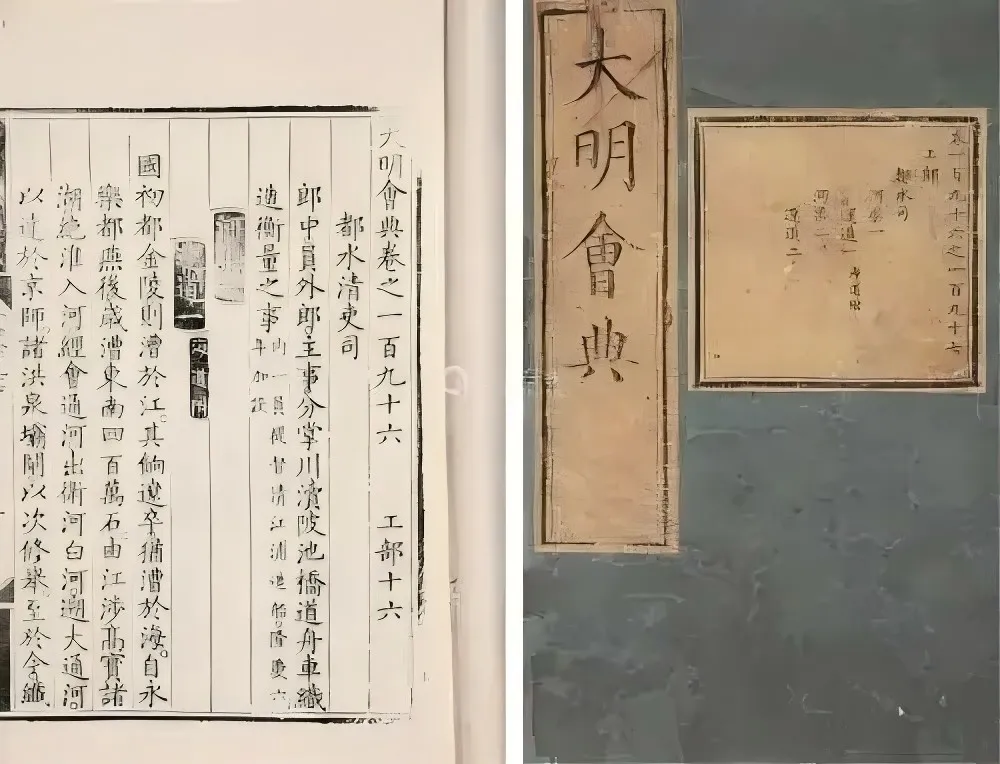 大明會典卷之一百九十六 工部十六
都水清吏司
郎中員外郎主事分掌川瀆陂池橋道舟車織
造衡量之事
國初都金陵則漕於江其餉遼卒猶漕於海自永
樂都燕後歲漕東南四百萬石由江涉高寶諸
湖絶淮入河經會通河出衛河白河遡大通河
以達於京師諸洪泉壩閘以次修舉至於今纖
大明會典
卷一百九十六之一百九十七
工部
都水司
河渠一
運道一
河渠二
運道二